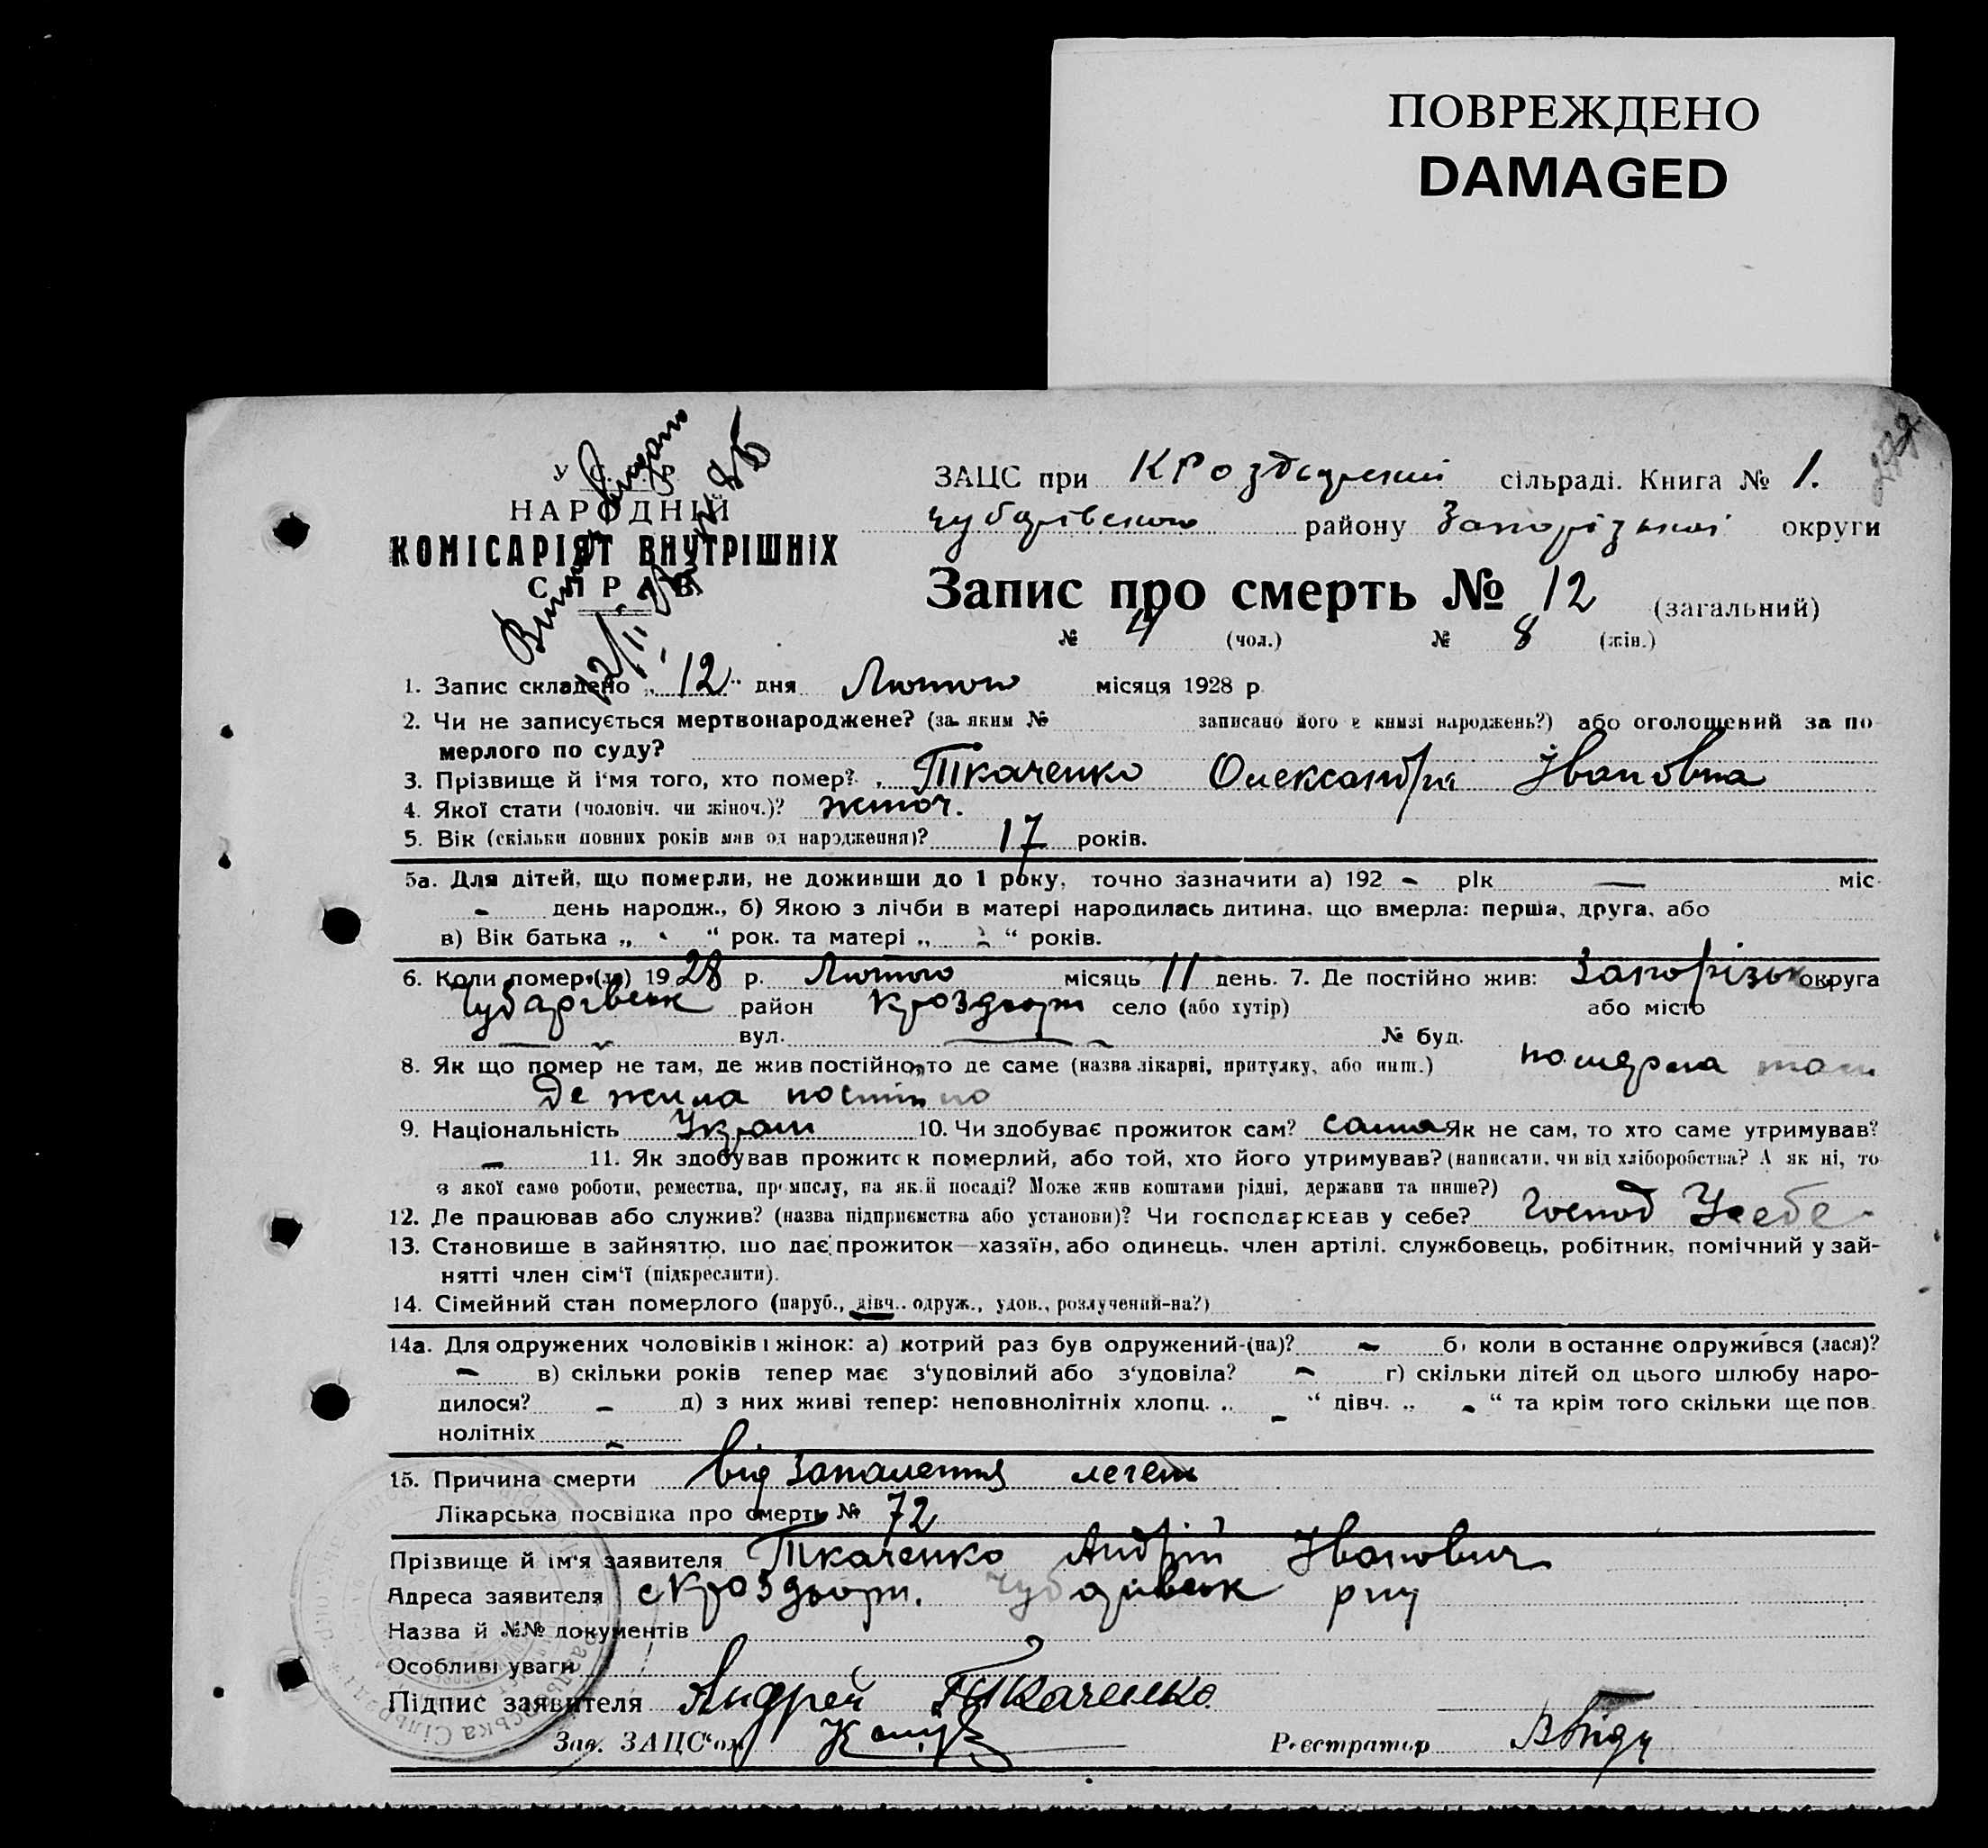 ПОВРЕЖДЕНО
DAMAGED
У. С. Р. Р.
НАРОДНІЙ
КОМІСАРІЯТ ВНУТРІШНІХ
СПРАВ
ЗАЦС при сільраді. Книга № 1.
Чубарівського району Запорізької округи
Запис про смерть № 12 (загальний)
№ 4 (чол.) № 8 (жін.)
1. Запис складено „ 12 " дня Лютого місяця 1928 р.
2. Чи не записується мертвонароджене? (за яким № записано його в книзі народжень?) або оголошений за по-
мерлого по суду?
3. Прізвище й ім'я того, хто помер? Ткаченко Олександра Івановна
4. Якої стати (чоловіч. чи жіноч.)? жіноч.
5. Вік (скільки повних років мав од народження)? 17 років.
5а. Для дітей, що померли, не доживши до 1 року, точно зазначити а) 192 - рік — міс.
- день народж., б) Якою з лічби в матері народилась дитина, що вмерла: перша, друга, або
в) Вік батька „ " рок. та матері „ " років.
6. Коли помер.(ла) 1928 р. Лютого місяць 11 день. 7. Де постійно жив: Запорізьк округа
Чубарівськ район Кроздьори село (або хутір) або місто
вул. № буд.
8. Як що помер не там, де жив постійно, то де саме (назва лікарні, притулку, або инш.) померла там
Де жила постійно
9. Національність Україн 10. Чи здобуває прожиток сам? сама Як не сам, то хто саме утримував?
- 11. Як здобував прожиток померлий, або той, хто його утримував? (написати, чи від хліборобства? А як ні, то
з якої саме роботи, ремества, промислу, на якій посаді? Може жив коштами рідні, держави та инше?)
12. Де працював або служив? (назва підприємства або установи)? Чи господарював у себе? Господ У себе
13. Становище в зайнятті, що дає прожиток—хазяїн, або одинець, член артілі, службовець, робітник, помічний у зай-
нятті член сім'ї (підкреслити).
14. Сімейний стан померлого (паруб., дівч., одруж., удов., розлучений-на?)
14а. Для одружених чоловіків і жінок: а) котрий раз був одружений-(на)? - б) коли востаннє одружився (лася)?
- в) скільки років тепер має з'удовілий або з'удовіла? - г) скільки дітей од цього шлюбу наро-
дилося? - д) з них живі тепер: неповнолітніх хлопц. „ - " дівч. „ - " та крім того скільки ще пов-
нолітніх -
15. Причина смерти від запалення легень
Лікарська посвідка про смерть № 72
Прізвище й ім'я заявителя Ткаченко Андрій Іванович
Адреса заявителя с Кроздьори. Чубарівськ р-ну
Назва й №№ документів
Особливі уваги
Підпис заявителя Андрей Ткаченко
Зав. ЗАЦС'ом Реєстратор